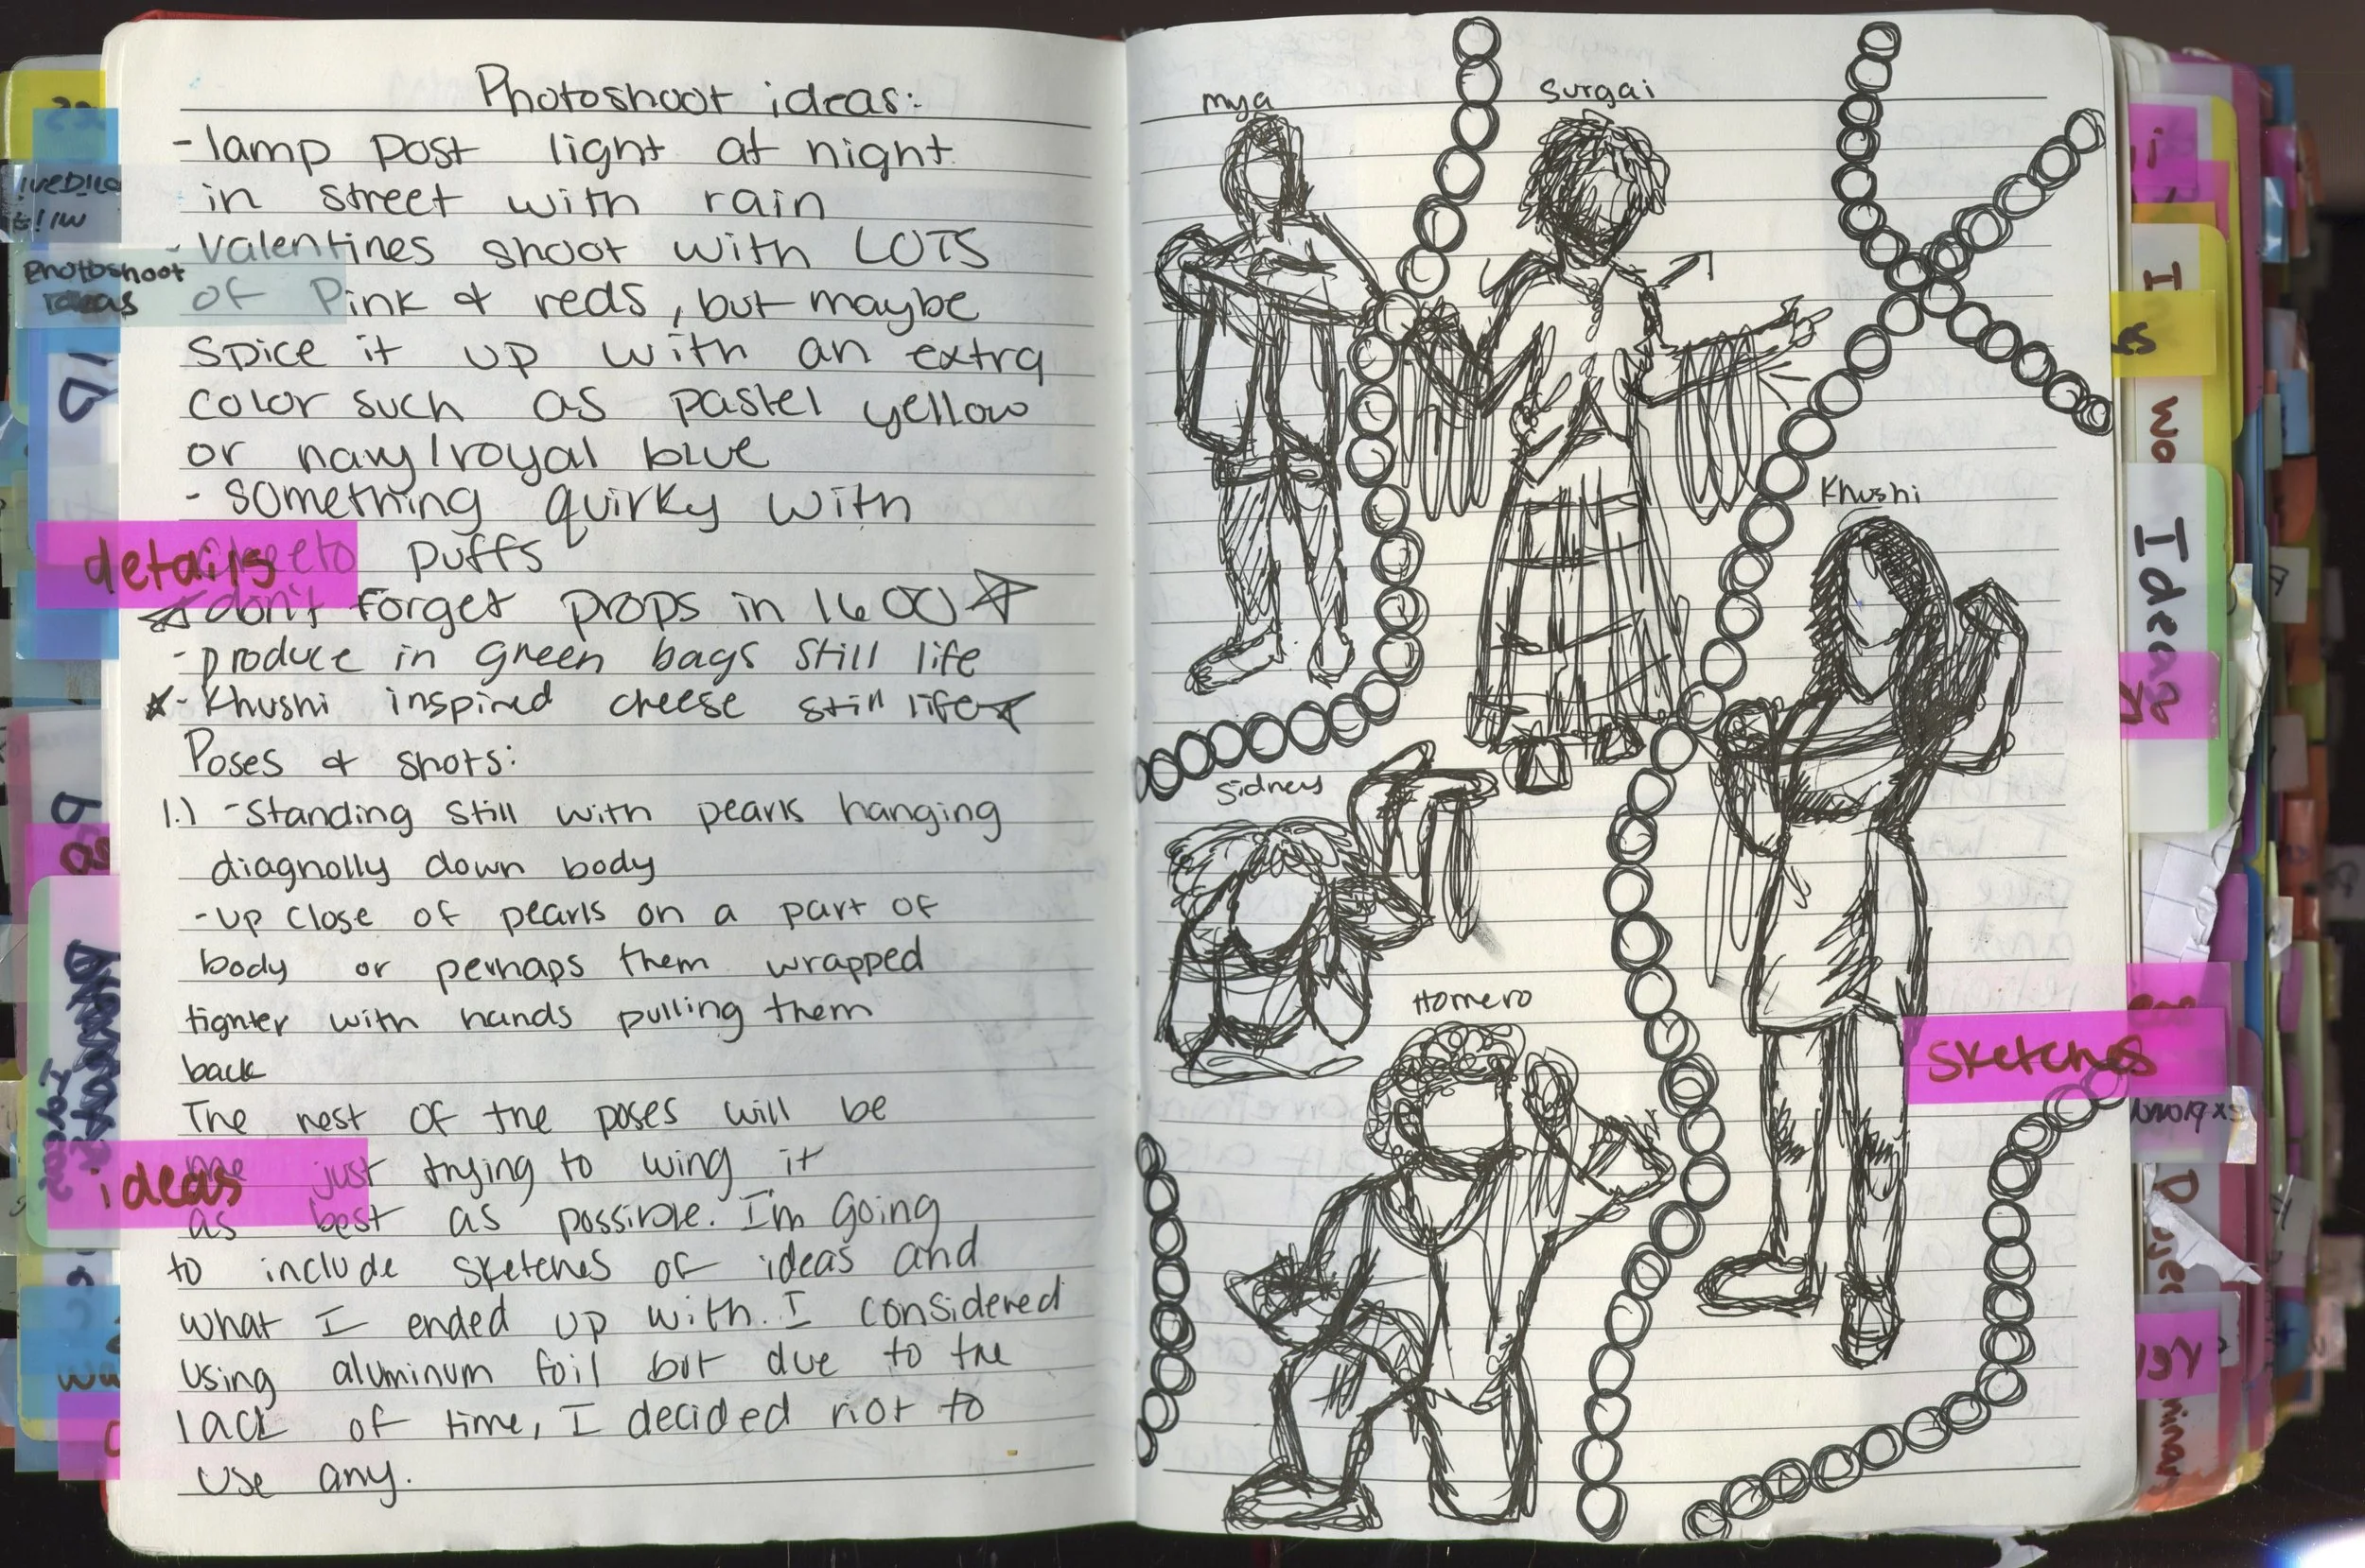 Photoshoot ideas:
- lamp post light at night
in street with rain
- valentines shoot with LOTS
of Pink & reds, but maybe
spice it up with an extra
color such as pastel yellow
or navy/royal blue
- something quirky with
cheeto puffs
don't forget props in 1600
- produce in green bags still life
- Khushi inspired cheese still life
Poses & shots:
1.) - Standing still with pearls hanging
diagnolly down body
- up close of pearls on a part of
body or perhaps them wrapped
tighter with hands pulling them
back
The rest of the poses will be
me just trying to wing it
as best as possible. I'm going
to include sketches of ideas and
what I ended up with. I considered
using aluminum foil but due to the
lack of time, I decided not to
use any.
Photoshoot
ideas
details
ideas
mya
Surgai
Khushi
Sidney
Homero
sketches
I wo
Ideas